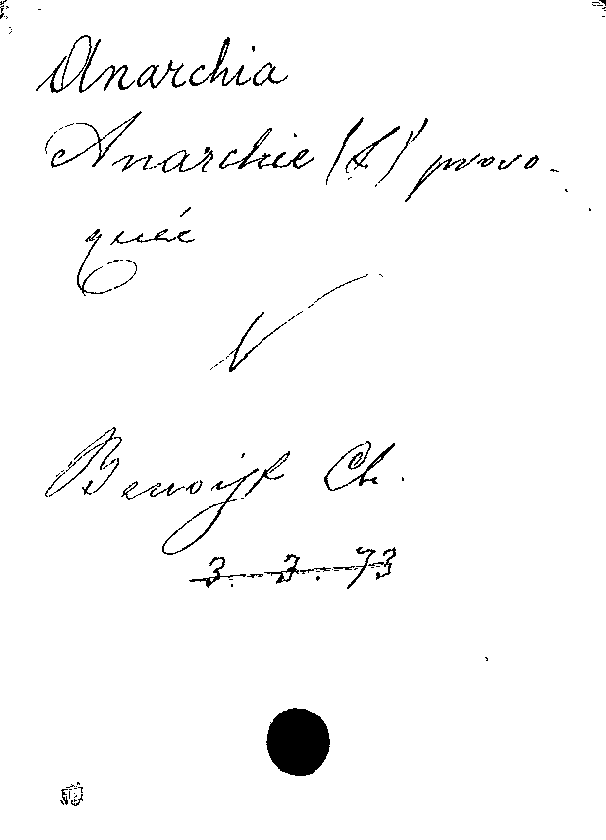 Anarchia
Anarchie (L') provo-
quée
V
Benoist Ch.
3. 3. 73